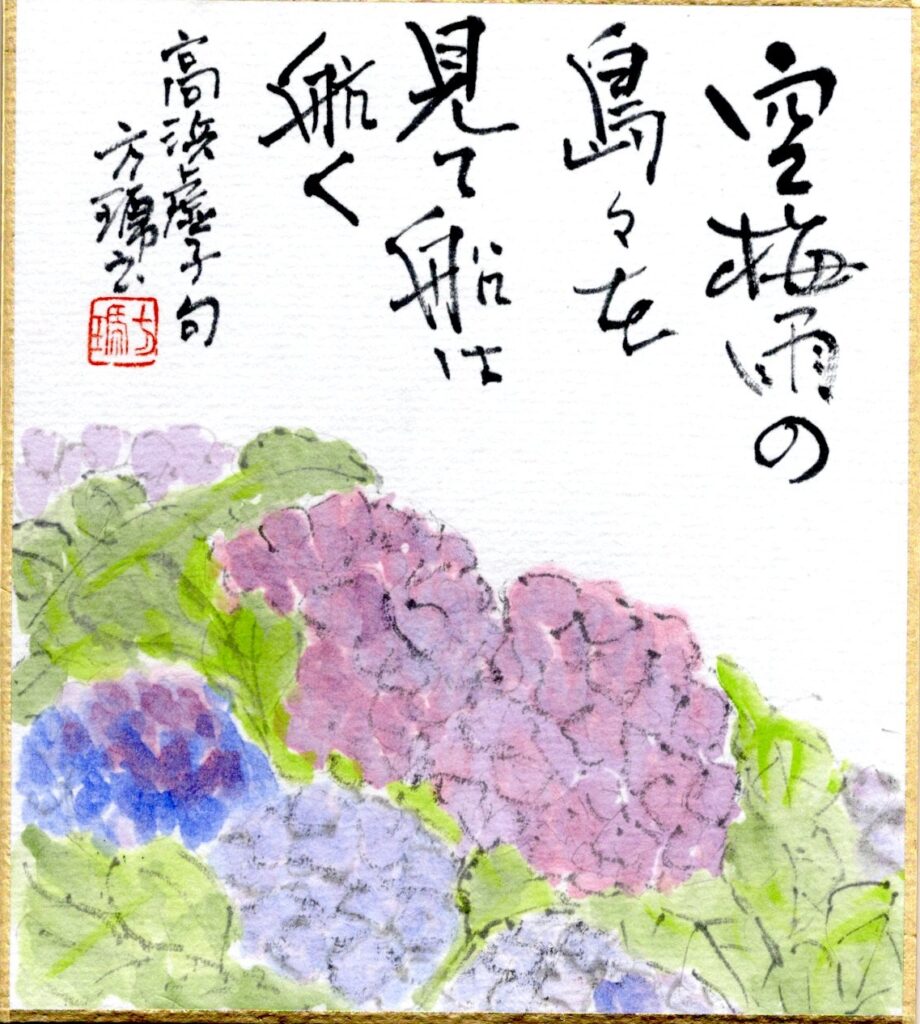 空梅雨の
島々を
見て船は
航く
高浜虚子句
方